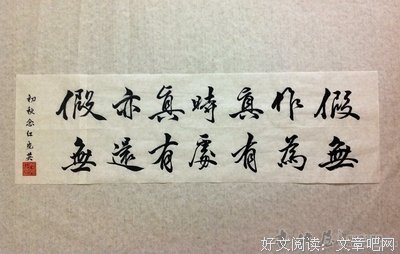 假作真時真亦假
無為有處有還無
初秋
好文阅读：文章吧网